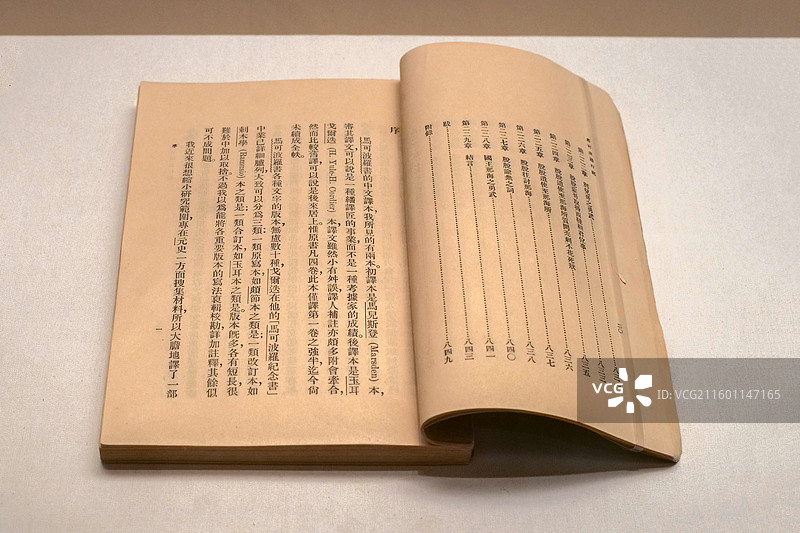 第二二五章 脫脫遣使至那海所……八三七
第二二六章 脫脫往討那海……八三八
第二二七章 脫脫諭衆之詞……八四〇
第二二八章 國王那海之勇武……八四一
第二二九章 結言……八四三
跋
附錄……八四九
序
馬可波羅書的中文譯本我所見的有兩本。初譯本是馬兒斯登 (Marsden) 本,
審其譯文,可以說是一種繙譯匠的事業,而不是一種考據家的成績。後譯本是玉耳
戈爾迭 (H. Yule-H. Cordier) 本,譯文雖然小有舛誤,譯人補註亦頗多附會牽合,
然而比較舊譯可以說是後來居上。惟原書凡四卷,此本僅譯第一卷之強半,迄今尚
未續成全帙。
馬可波羅書各種文字的版本,無慮數十種,戈爾迭在他的「馬可波羅紀念書」
中業已詳細臚列,大致可以分爲三類:一類原寫本,如頗節本之類是;一類改訂本,如
剌木學 (Ramusio) 本之類是;一類合訂本,如玉耳本之類是。版本旣多,各有短長,很
難於中加以取捨。不過我以爲能將各重要版本的寫法裒輯校勘,詳加註釋,其餘似
可不成問題。
我近來很想縮小研究範圍,專在元史一方面搜集材料,所以大膽地譯了一部
序
一
VCG
VCG
ID:VCG211601147165